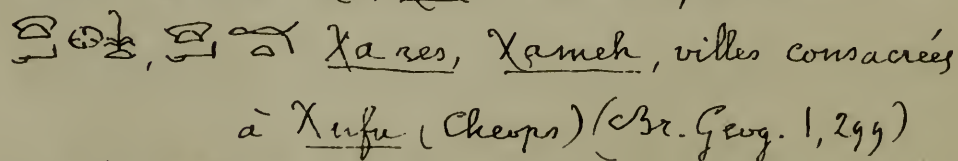 Xa res, Xameh, villes consacrées
à Xufu (Cheops) (Br. Geog. 1, 299)